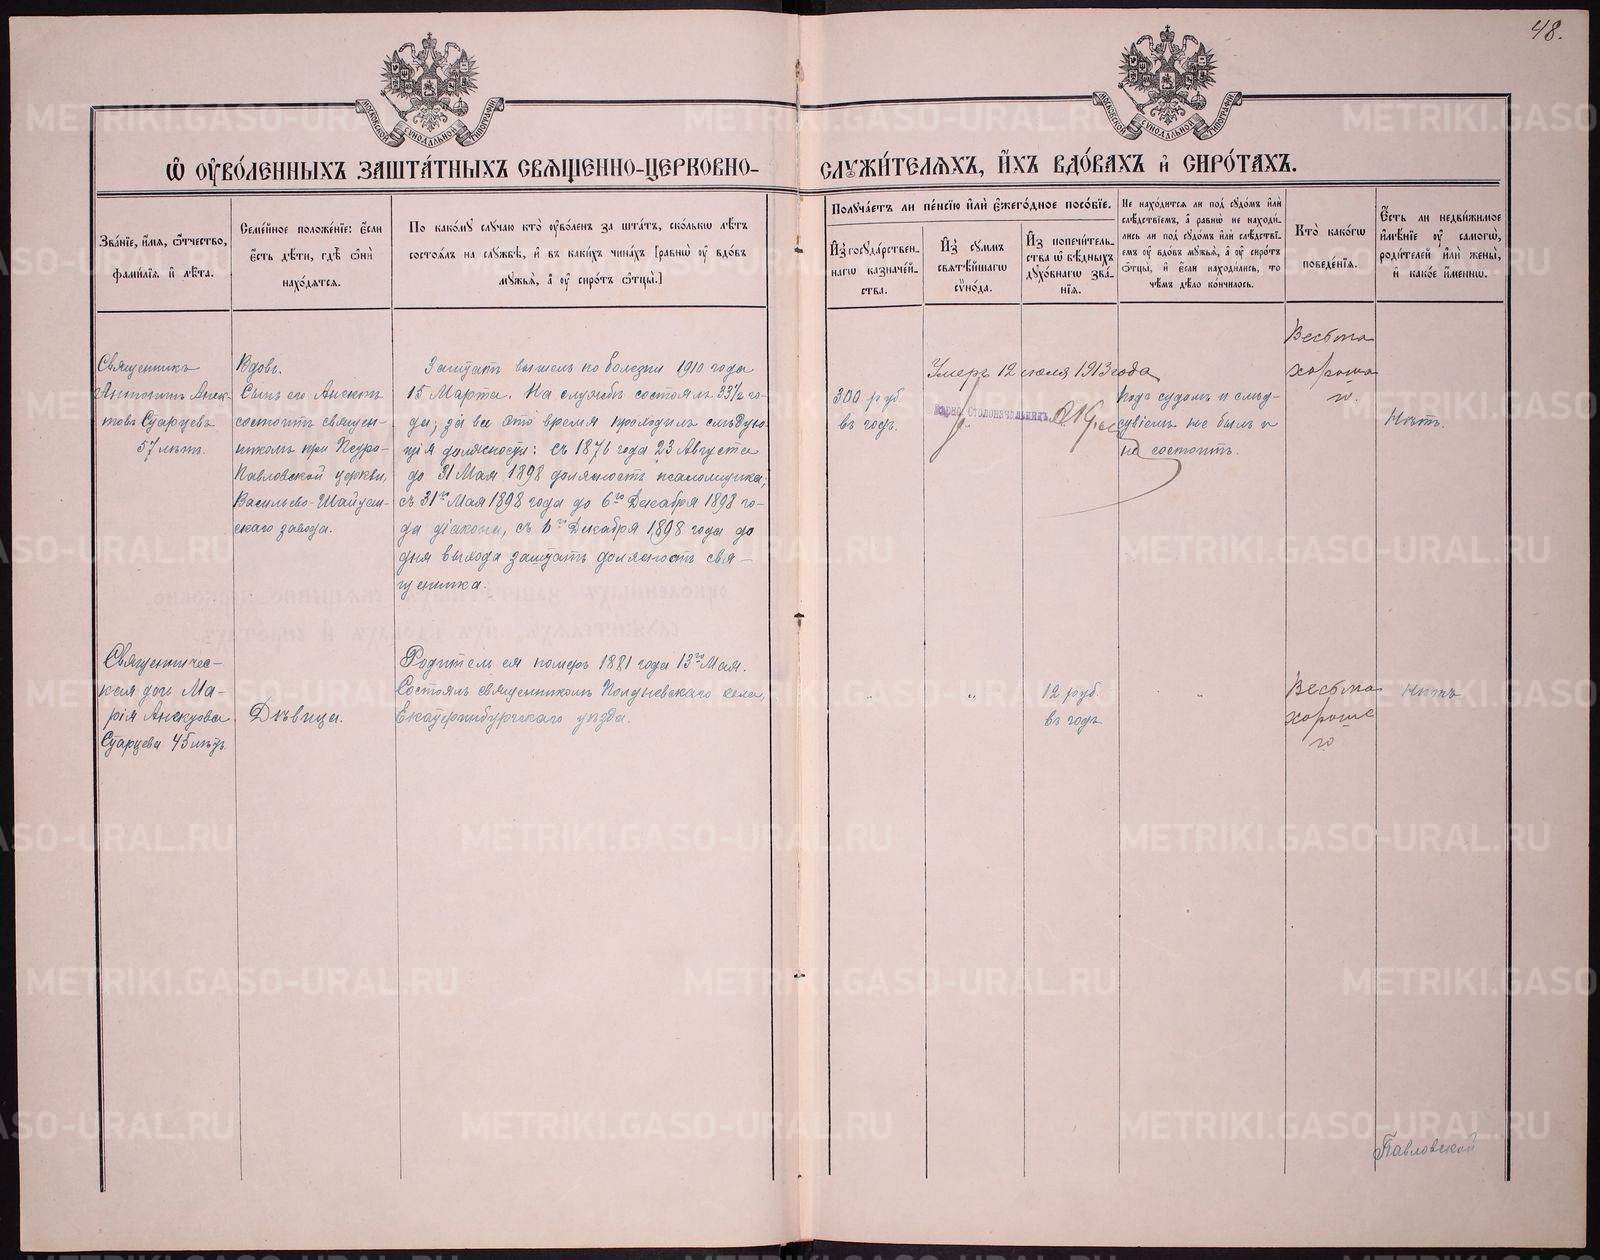 48.
МОСКОВСКОЙ СѴНОДАЛЬНОЙ ТИПОГРАФІИ
МОСКОВСКОЙ СѴНОДАЛЬНОЙ ТИПОГРАФІИ
Ѡ ОУ҆ВО́ЛЕННЫХЪ ЗАШТА́ТНЫХЪ СВѦЩЕННО-ЦЕРКОВНО-СЛꙋЖИ́ТЕЛѦХЪ, И҆́ХЪ ВДО́ВАХЪ и҆ СИРО́ТАХЪ.
Зва́нїе, и҆́мѧ, ѻ҆́тчество,
фамі́лїѧ и҆ лѣ́та.
Семе́йное положе́нїе: є҆́сли
є҆́сть дѣ́ти, гдѣ̀ ѻ҆нѝ
нахо́дѧтсѧ.
По како́мꙋ слꙋ́чаю кто̀ оу҆во́ленъ за шта́тъ, ско́лькѡ лѣ́тъ
состоѧ́лъ на слꙋ́жбѣ, и҆ въ каки́хъ чина́хъ [ра́внѡ оу҆ вдо́въ
мꙋжьѧ̀, а҆ оу҆ сиро́тъ ѻ҆тцы̀.]
Полꙋча́етъ ли пе́нсїю и҆лѝ є҆жего́дное посо́бїе.
И҆з̾ госꙋда́рствен-
нагѡ казначе́й-
ства.
И҆з̾ сꙋ́ммъ
свѧтѣ́йшагѡ
сѷно́да.
И҆з̾ попечи́тель-
ства ѡ҆ бѣ́дныхъ
дꙋхо́внагѡ зва́-
нїѧ.
Не нахо́дитсѧ ли под̾ сꙋдо́мъ и҆лѝ
слѣ́дствїемъ, а҆ ра́внѡ не находи́-
лись ли под̾ сꙋдо́мъ и҆лѝ слѣ́дствї-
емъ оу҆ вдо́въ мꙋжьѧ̀, а҆ оу҆ сиро́тъ
ѻ҆тцы̀, и҆ є҆́сли находи́лись, то
чѣ́мъ дѣ́ло ко́нчилось.
Кто̀ како́гѡ
поведе́нїѧ.
Є҆́сть ли недви́жимое
и҆мѣ́нїе оу҆ самогѡ̀,
роди́телей и҆лѝ жены̀,
и҆ како́е и҆́меннѡ.
Священникъ
Антонинъ Анек-
товъ Старцевъ
57 лѣтъ.
Вдовъ.
Сынъ его Анектъ
состоитъ священ-
никомъ при Петро-
Павловской церкви,
Васильево-Шайтан-
скаго завода.
Заштатъ вышелъ по болезни 1910 года
15 Марта. На службѣ состоялъ 33½ го-
да; за все это время проходилъ слѣдую-
щія должности: съ 1876 года 23 Августа
до 31 Мая 1898 должность псаломщика,
съ 31го Мая 1898 года до 6го Декабря 1898 го-
да діакона, съ 6го Декабря 1898 года до
дня выхода заштатъ должность свя-
щенника.
300 руб.
въ годъ.
Умеръ 12 июля 1913 года
Столоначальникъ
Подъ судомъ и слѣд-
ствіемъ не былъ и
не состоитъ.
Весьма
хороша-
го.
Нѣтъ.
Священничес-
кая дочь Ма-
рія Анектова
Старцева 45 лѣтъ
Дѣвица.
Родитель ея померъ 1881 года 13го Мая.
Состоялъ священникомъ Полдневскаго села,
Екатеринбургскаго уѣзда.
"
"
12 руб.
въ годъ
"
Весьма
хороше
го
нѣтъ
Павловской
METRIKI.GASO-URAL.RU